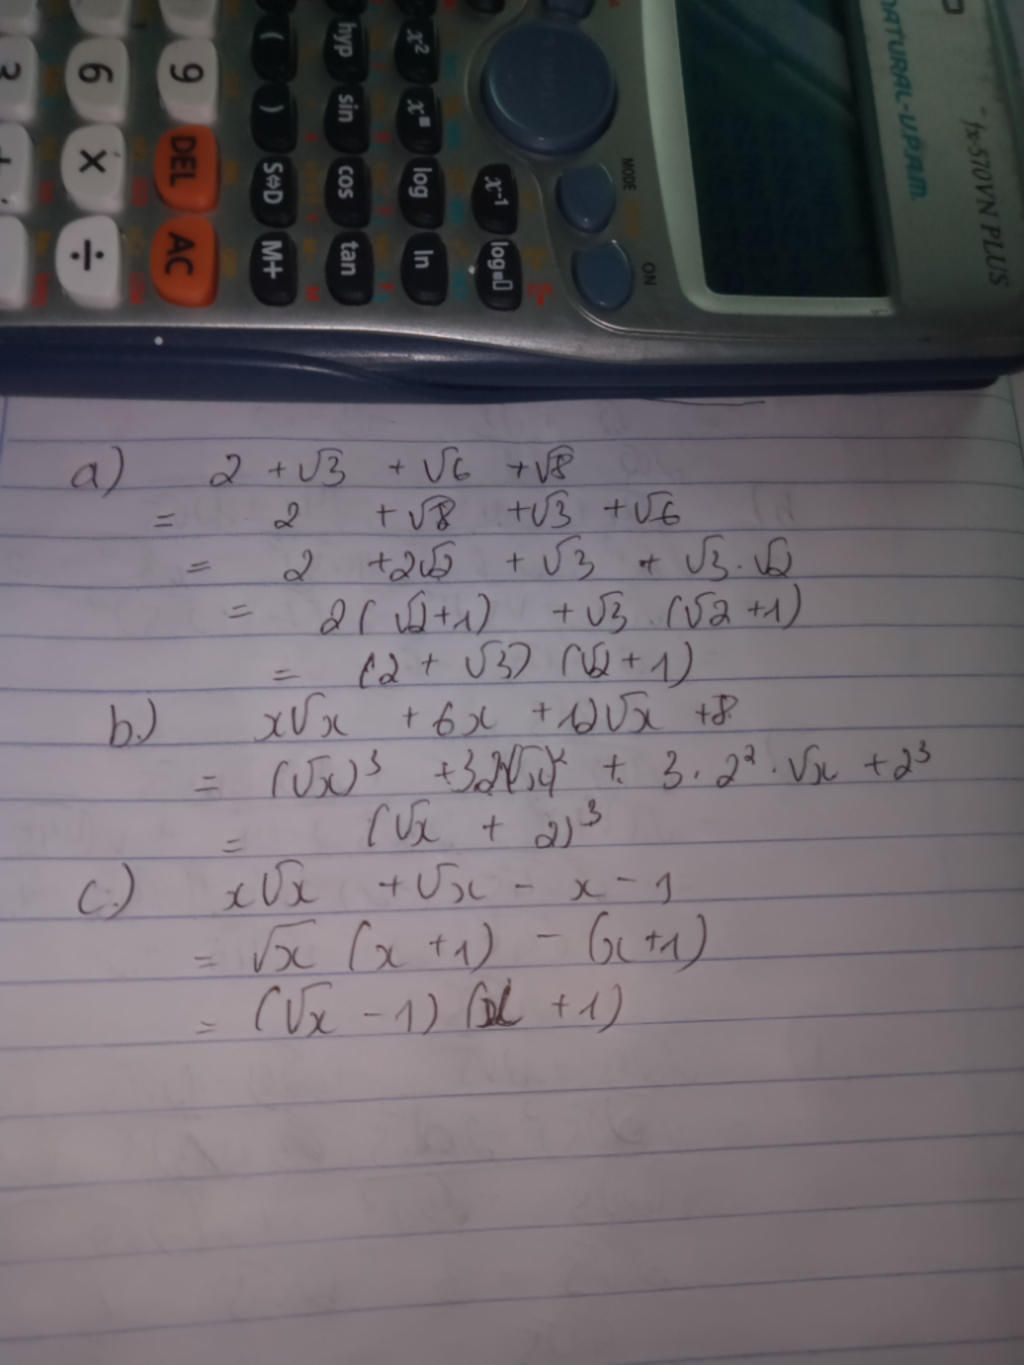 fx-570VN PLUS
NATURAL-V.P.A.M.
MODE
ON
x⁻¹
log
x²
x
log
ln
hyp
sin
cos
tan
(
)
S⇔D
M+
9
DEL
AC
6
×
÷
3
+
a) 2 + √3 + √6 + √8
= 2 + √8 + √3 + √6
= 2 + 2√2 + √3 + √3 . √2
= 2(√2+1) + √3 . (√2+1)
= (2 + √3) (√2+1)
b.) x√x + 6x + 12√x + 8
= (√x)³ + 3.2(√x)² + 3 . 2² . √x + 2³
= (√x + 2)³
c.) x√x + √x - x - 1
= √x (x+1) - (x+1)
= (√x - 1) (x + 1)